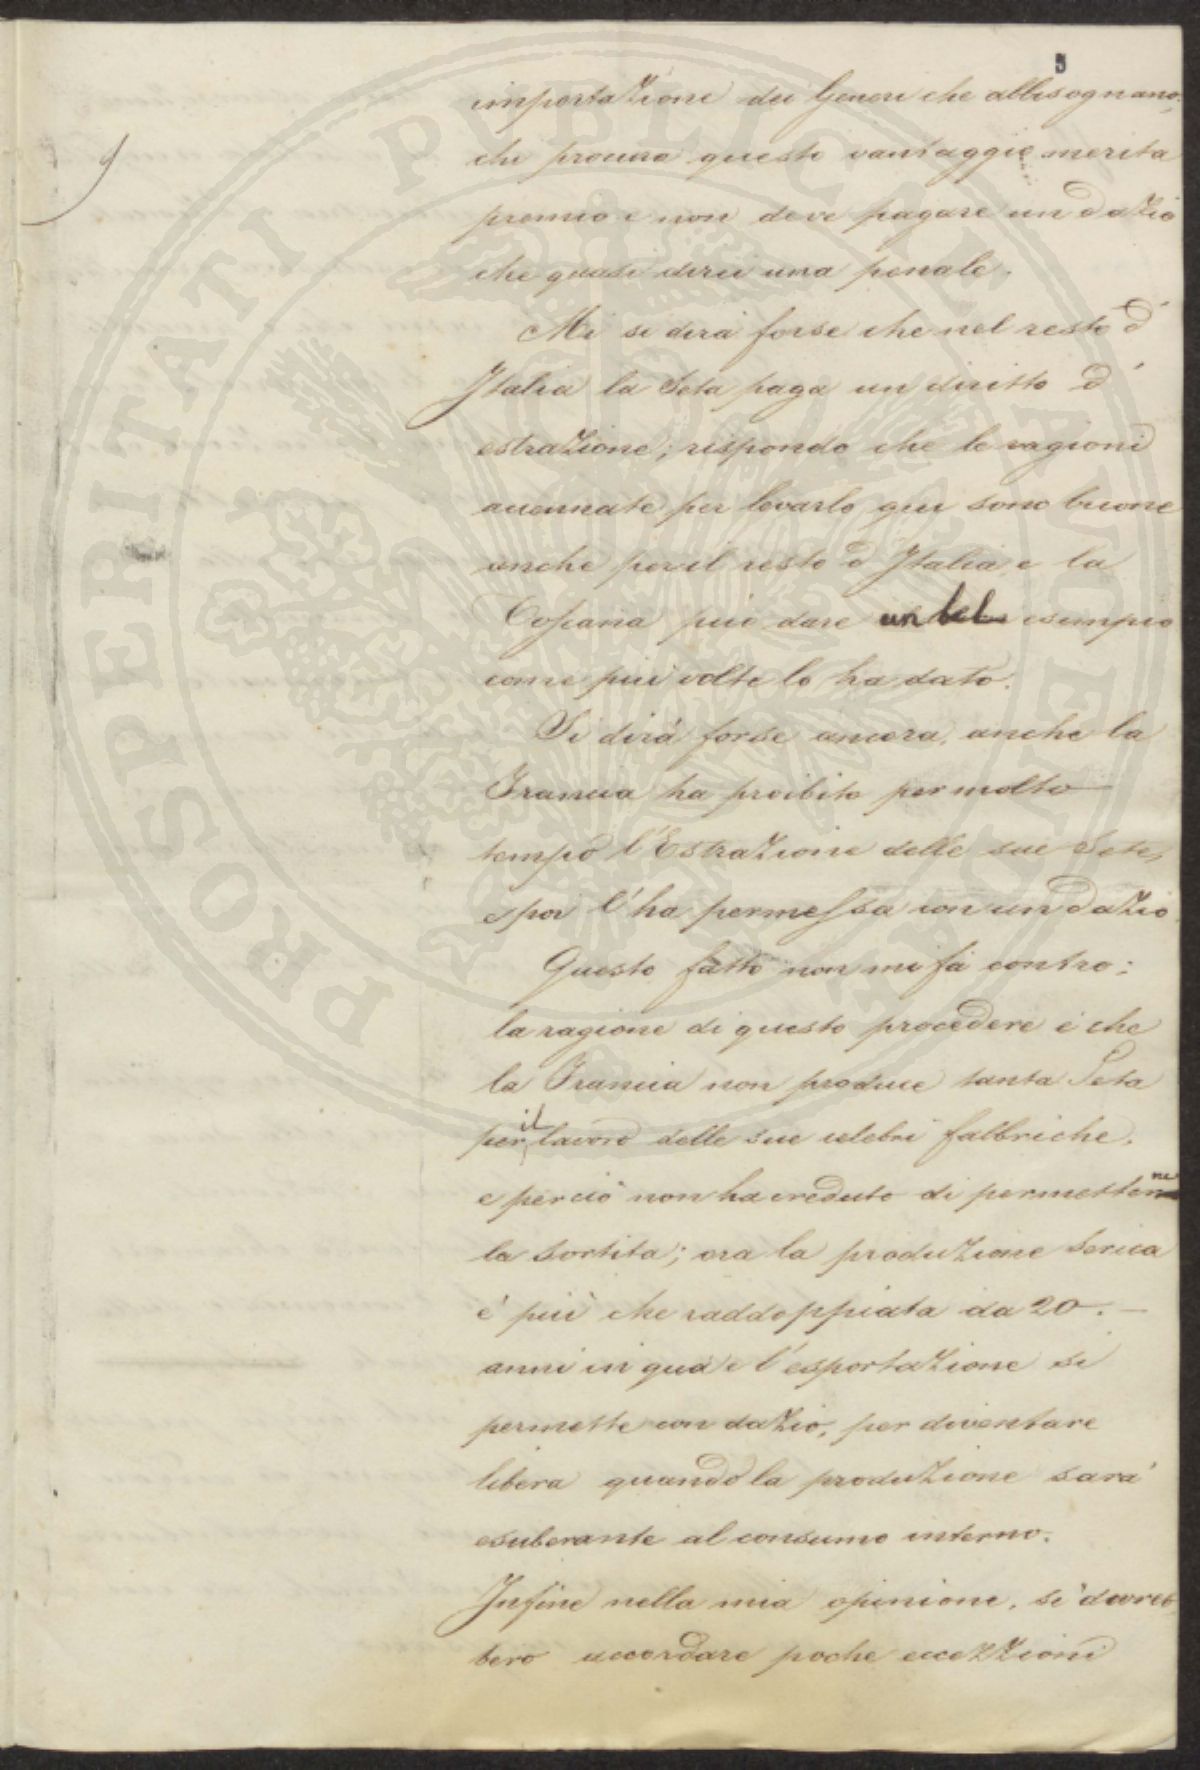 5
importazione dei Generi che abbisognano;
chi procura questo vantaggio merita
premio e non deve pagare un dazio
che quasi direi una penale.
Mi si dirà forse che nel resto d'
Italia la Seta paga un diritto d'
estrazione; rispondo che le ragioni
accennate per levarlo qui sono buone
anche per il resto d'Italia, e la
Toscana può dare un bel esempio
come più volte lo ha dato.
Si dirà forse ancora, anche la
Francia ha proibito per molto
tempo l'Estrazione delle sue Sete,
e poi l'ha permessa con un dazio
Questo fatto non mi fà contro;
la ragione di questo procedere è che
la Francia non produce tanta Seta
per il lavoro delle sue celebri fabbriche,
e perciò non ha creduto di permetterne
la sortita; ora la produzione Serica
è più che raddoppiata da 20. –
anni in qua e l'esportazione si
permette con dazio, per diventare
libera quando la produzione sarà
esuberante al consumo interno.
Infine nella mia opinione, si dovreb
bero accordare poche eccezzioni
PROSPERITATI PUBLICAE AUGENDAE